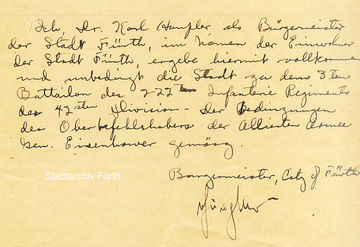 Ich, Dr. Karl Häupler als Bürgermeister
der Stadt Fürth, im Namen der Einwohner
der Stadt Fürth, ergebe hiermit vollkommen
und unbedingt die Stadt zu dem 3ten
Battailon des 222 Infanterie Regiments
des 42sten Division - der Bedingungen
des Oberbefehlshabers der Allierten Armee
Gen. Eisenhower gemäss.
Burgermeister, City of Fürth
Stadtarchiv Fürth